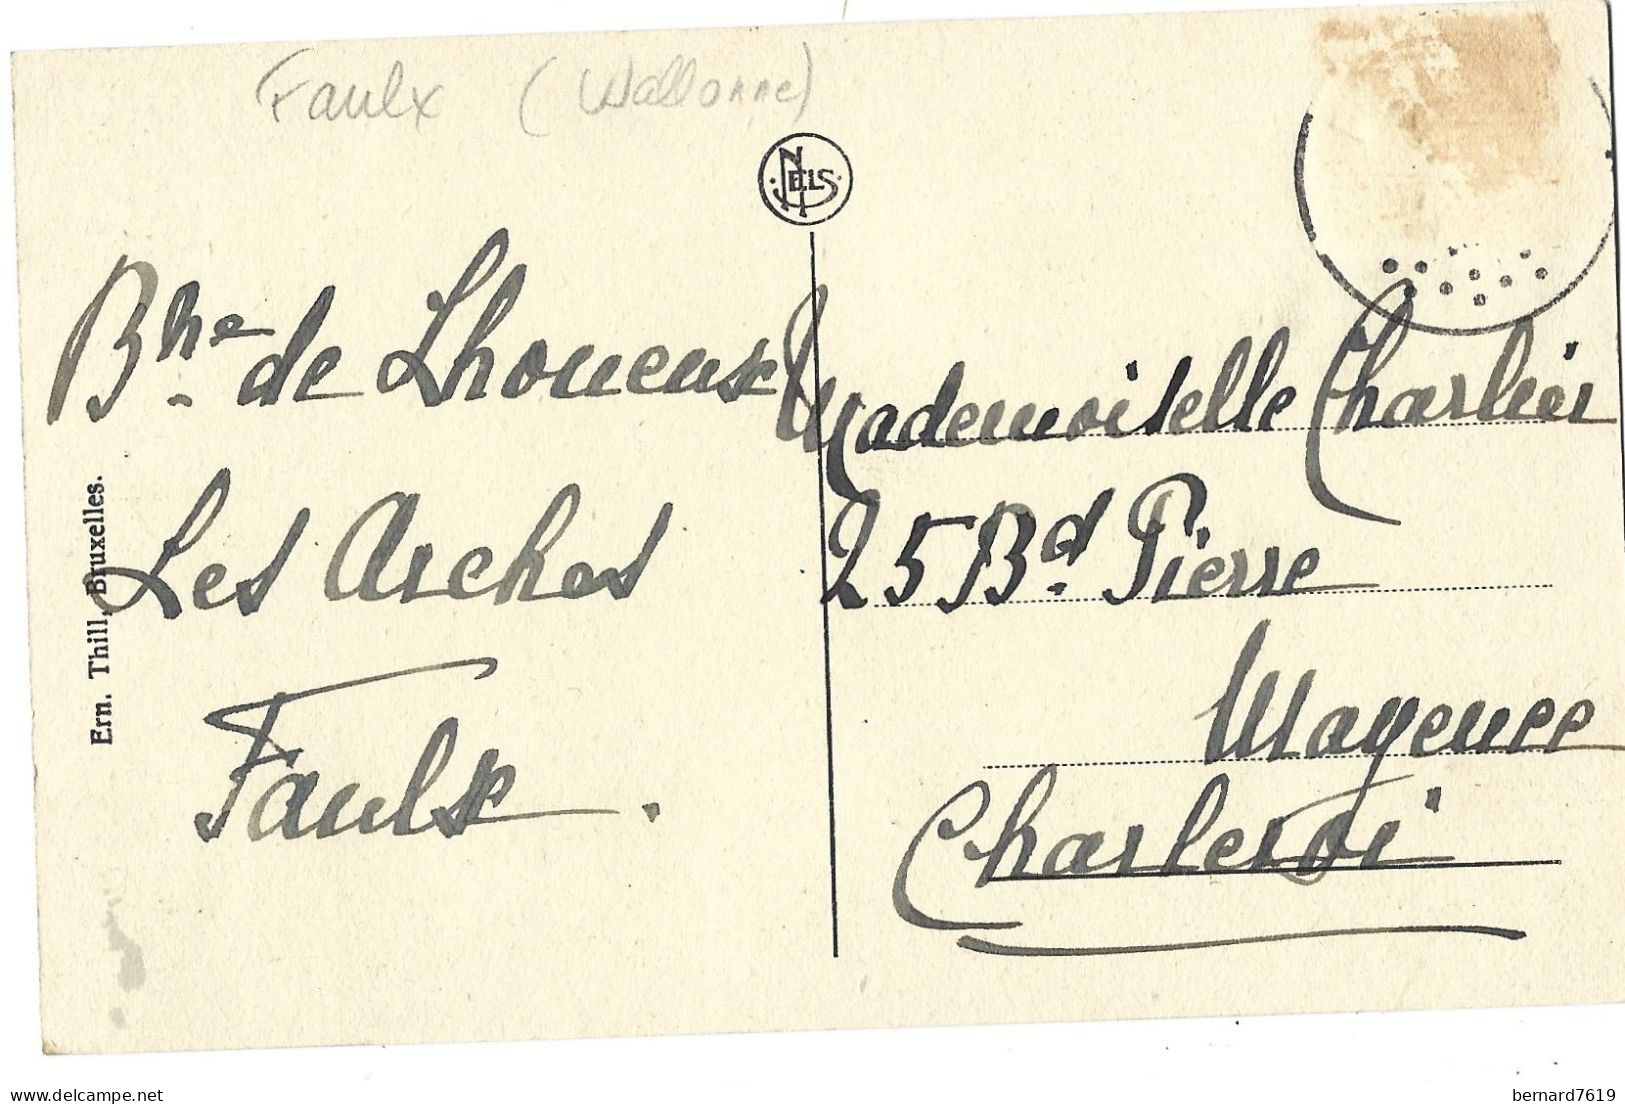 Faulx (Wallonne)
NELS
Bne de Lhoneux
Les Arches
Faulx.
Mademoiselle Charlier
25 Bd. Pierre
Mayence
Charleroi
Ern. Thill, Bruxelles.
www.delcampe.net
bernard7619